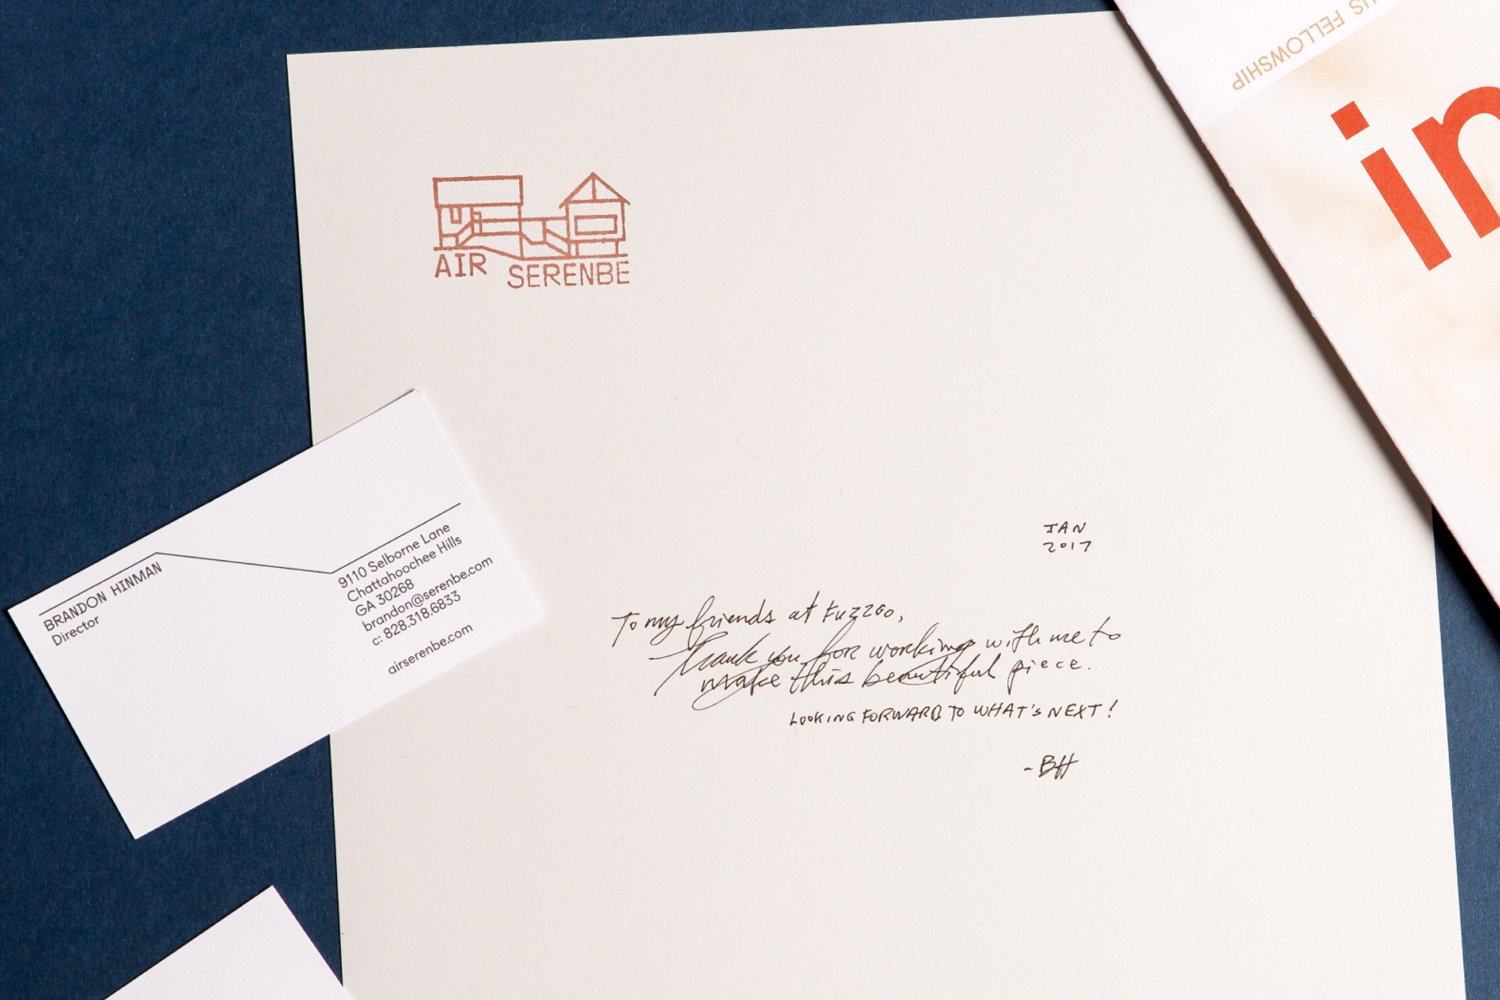 US FELLOWSHIP
in
AIR SERENBE
BRANDON HINMAN
Director
9110 Selborne Lane
Chattahoochee Hills
GA 30268
brandon@serenbe.com
c: 828.318.6833
airserenbe.com
JAN
2017
To my friends at Fuzzco,
Thank you for working with me to
make this beautiful piece.
LOOKING FORWARD TO WHAT'S NEXT!
-BH